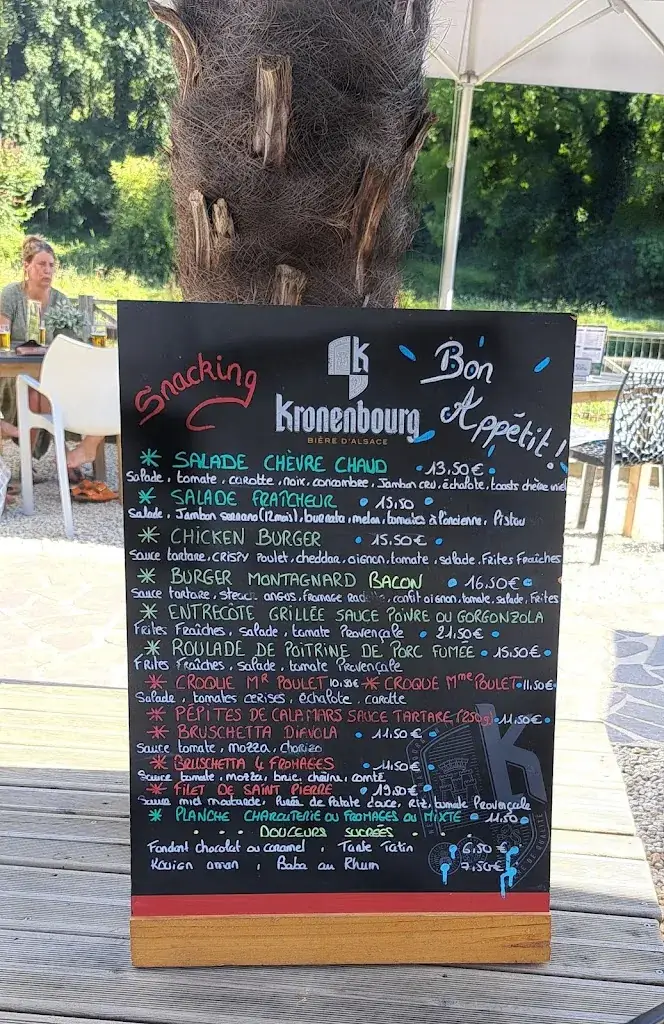 Snacking
Kronenbourg
BIÈRE D'ALSACE
Bon
Appétit!
* SALADE CHÈVRE CHAUD • 13,50€ •
Salade, tomate, carotte, noix, concombre, Jambon cru, échalote, toasts chèvre miel
* SALADE FRAÎCHEUR • 15,50 •
Salade, Jambon serrano (12 mois), burrata, melon, tomates à l'ancienne, Pistou
* CHICKEN BURGER • 15.50€ •
Sauce tartare, CRISPY Poulet, cheddar, oignon, tomate, salade. Frites Fraîches
* BURGER MONTAGNARD BACON • 16,50€ •
Sauce tartare, steack angus, fromage, confit oignon, tomate, salade, Frites
* ENTRECÔTE GRILLÉE SAUCE POIVRE OU GORGONZOLA
Frites Fraîches, salade, tomate Provençale • 21,50€ •
* ROULADE DE POITRINE DE PORC FUMÉE • 15,50€ •
Frites Fraîches, salade, tomate Provençale
* CROQUE Mr POULET 10,50€ * CROQUE Mme POULET • 11,50€ •
Salade, tomates cerises, échalote, carotte
* PÉPITES DE CALAMARS SAUCE TARTARE (250g) • 11,50€ •
* BRUSCHETTA DIAVOLA • 11.50€ •
Sauce tomate, mozza, Chorizo
* BRUSCHETTA 4 FROMAGES • 11,50€ •
Sauce tomate, mozza, brie, chèvre, comté
* FILET DE SAINT PIERRE • 19,50€ •
Sauce miel moutarde, Purée de Patate douce, Riz, tomate Provençale
* PLANCHE CHARCUTERIE OU FROMAGES OU MIXTE • 11.50 •
• • • DOUCEURS SUCRÉES • • •
Fondant chocolat ou caramel, Tarte Tatin • 6,50€ •
Kouign aman, Baba au Rhum • 7,50€ •